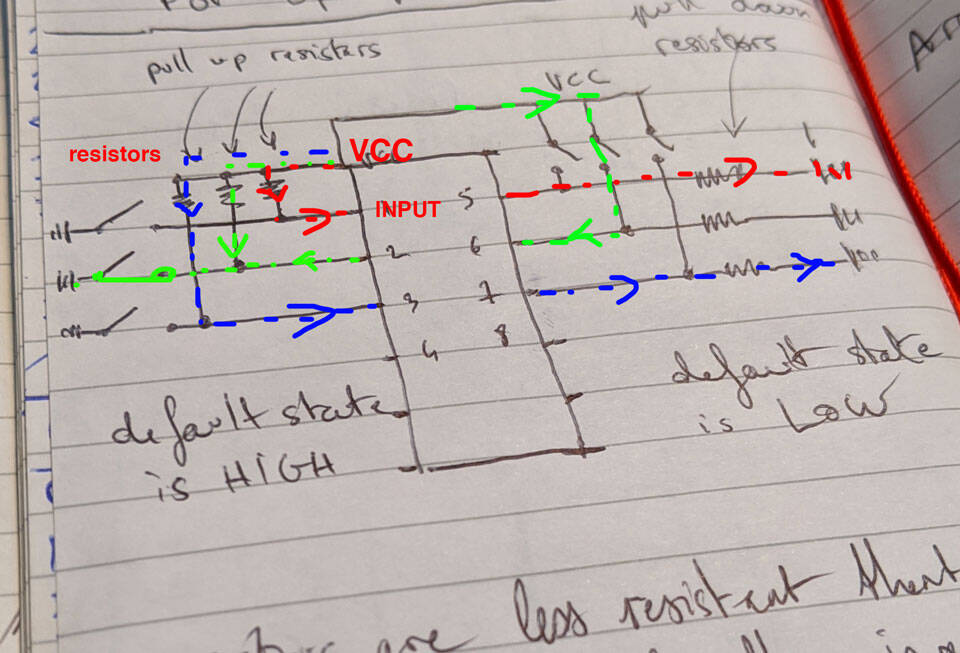 pull down
resistors
pull up resistors
VCC
resistors
VCC
INPUT
5
2
6
3
7
4
8
default state
is HIGH
default state
is LOW
are less resistant thent